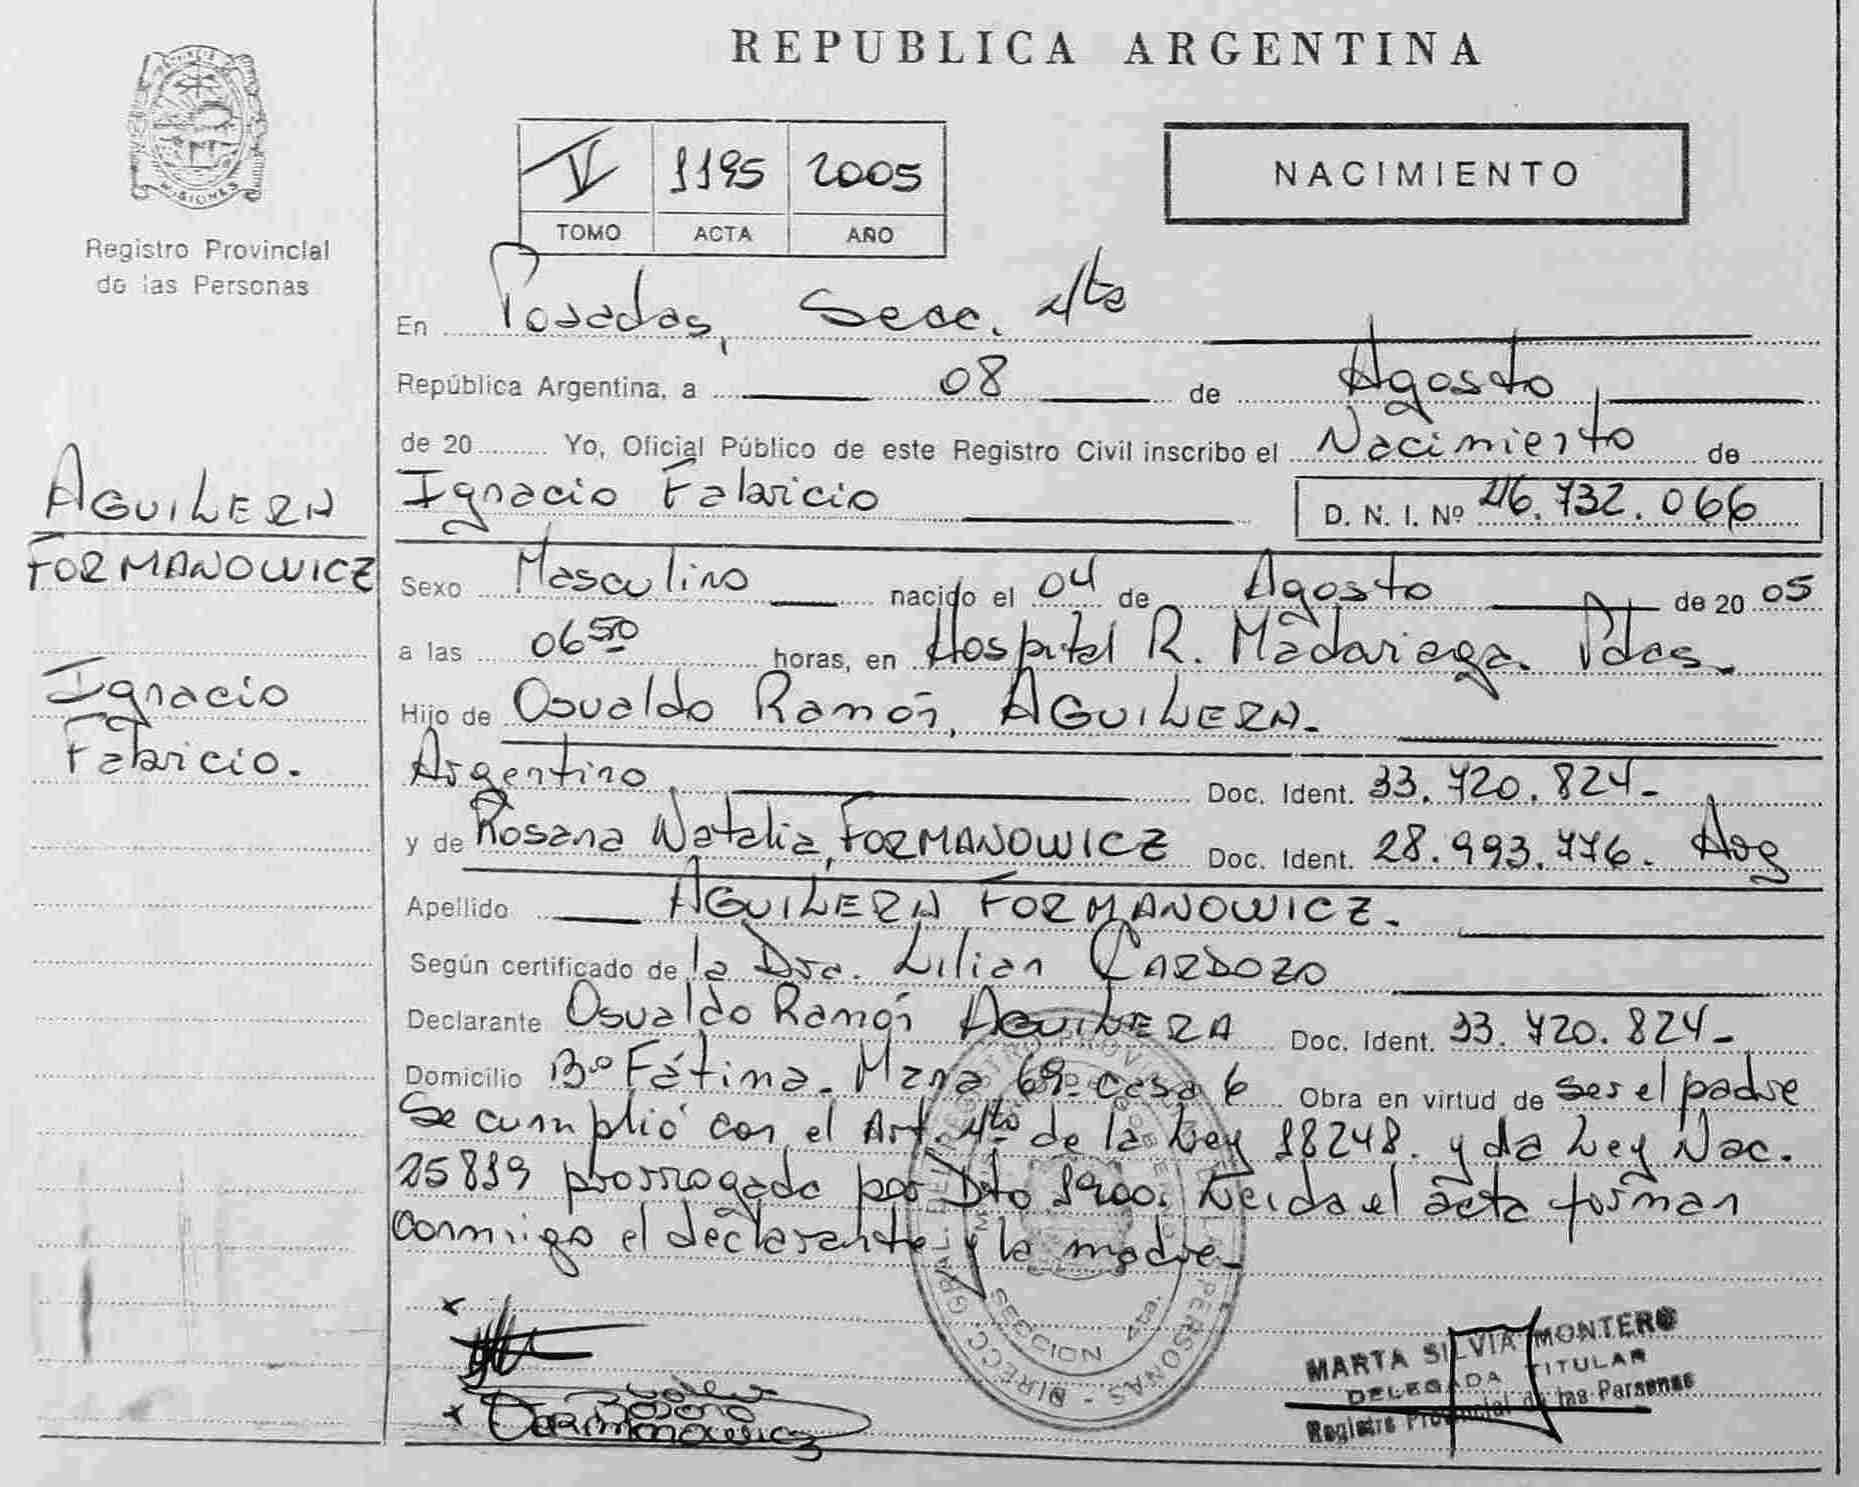 REPUBLICA ARGENTINA
PROVINCIA DE MISIONES
Registro Provincial
de las Personas
V 1195 2005
TOMO ACTA AÑO
NACIMIENTO
En Posadas, Secc. 4ta
República Argentina, a 08 de Agosto
de 20 Yo, Oficial Público de este Registro Civil inscribo el Nacimiento de
Ignacio Fabricio D. N. I. Nº 46.732.066
AGUILERA
FORMANOWICZ
Ignacio
Fabricio.
Sexo Masculino nacido el 04 de Agosto de 20 05
a las 06 50 horas, en Hospital R. Madariaga. Pdas.
Hijo de Osvaldo Ramón, AGUILERA.
Argentino Doc. Ident. 33.720.824-
y de Rosana Natalia, FORMANOWICZ Doc. Ident. 28.993.776. Arg
Apellido AGUILERA FORMANOWICZ.
Según certificado de la Dra. Lilian CARDOZO
Declarante Osvaldo Ramón AGUILERA Doc. Ident. 33.720.824-
Domicilio Bº Fátima. Mzna 69. casa 6 Obra en virtud de ser el padre
Se cumplió con el Art. 4to de la Ley 18248. y la Ley Nac.
25819 prorrogada por Dto 1900. Leida el acta forman
conmigo el declarante y la madre.
SECCION 4ta.
MARTA SILVIA MONTERO
DELEGADA TITULAR
Registro Provincial de las Personas